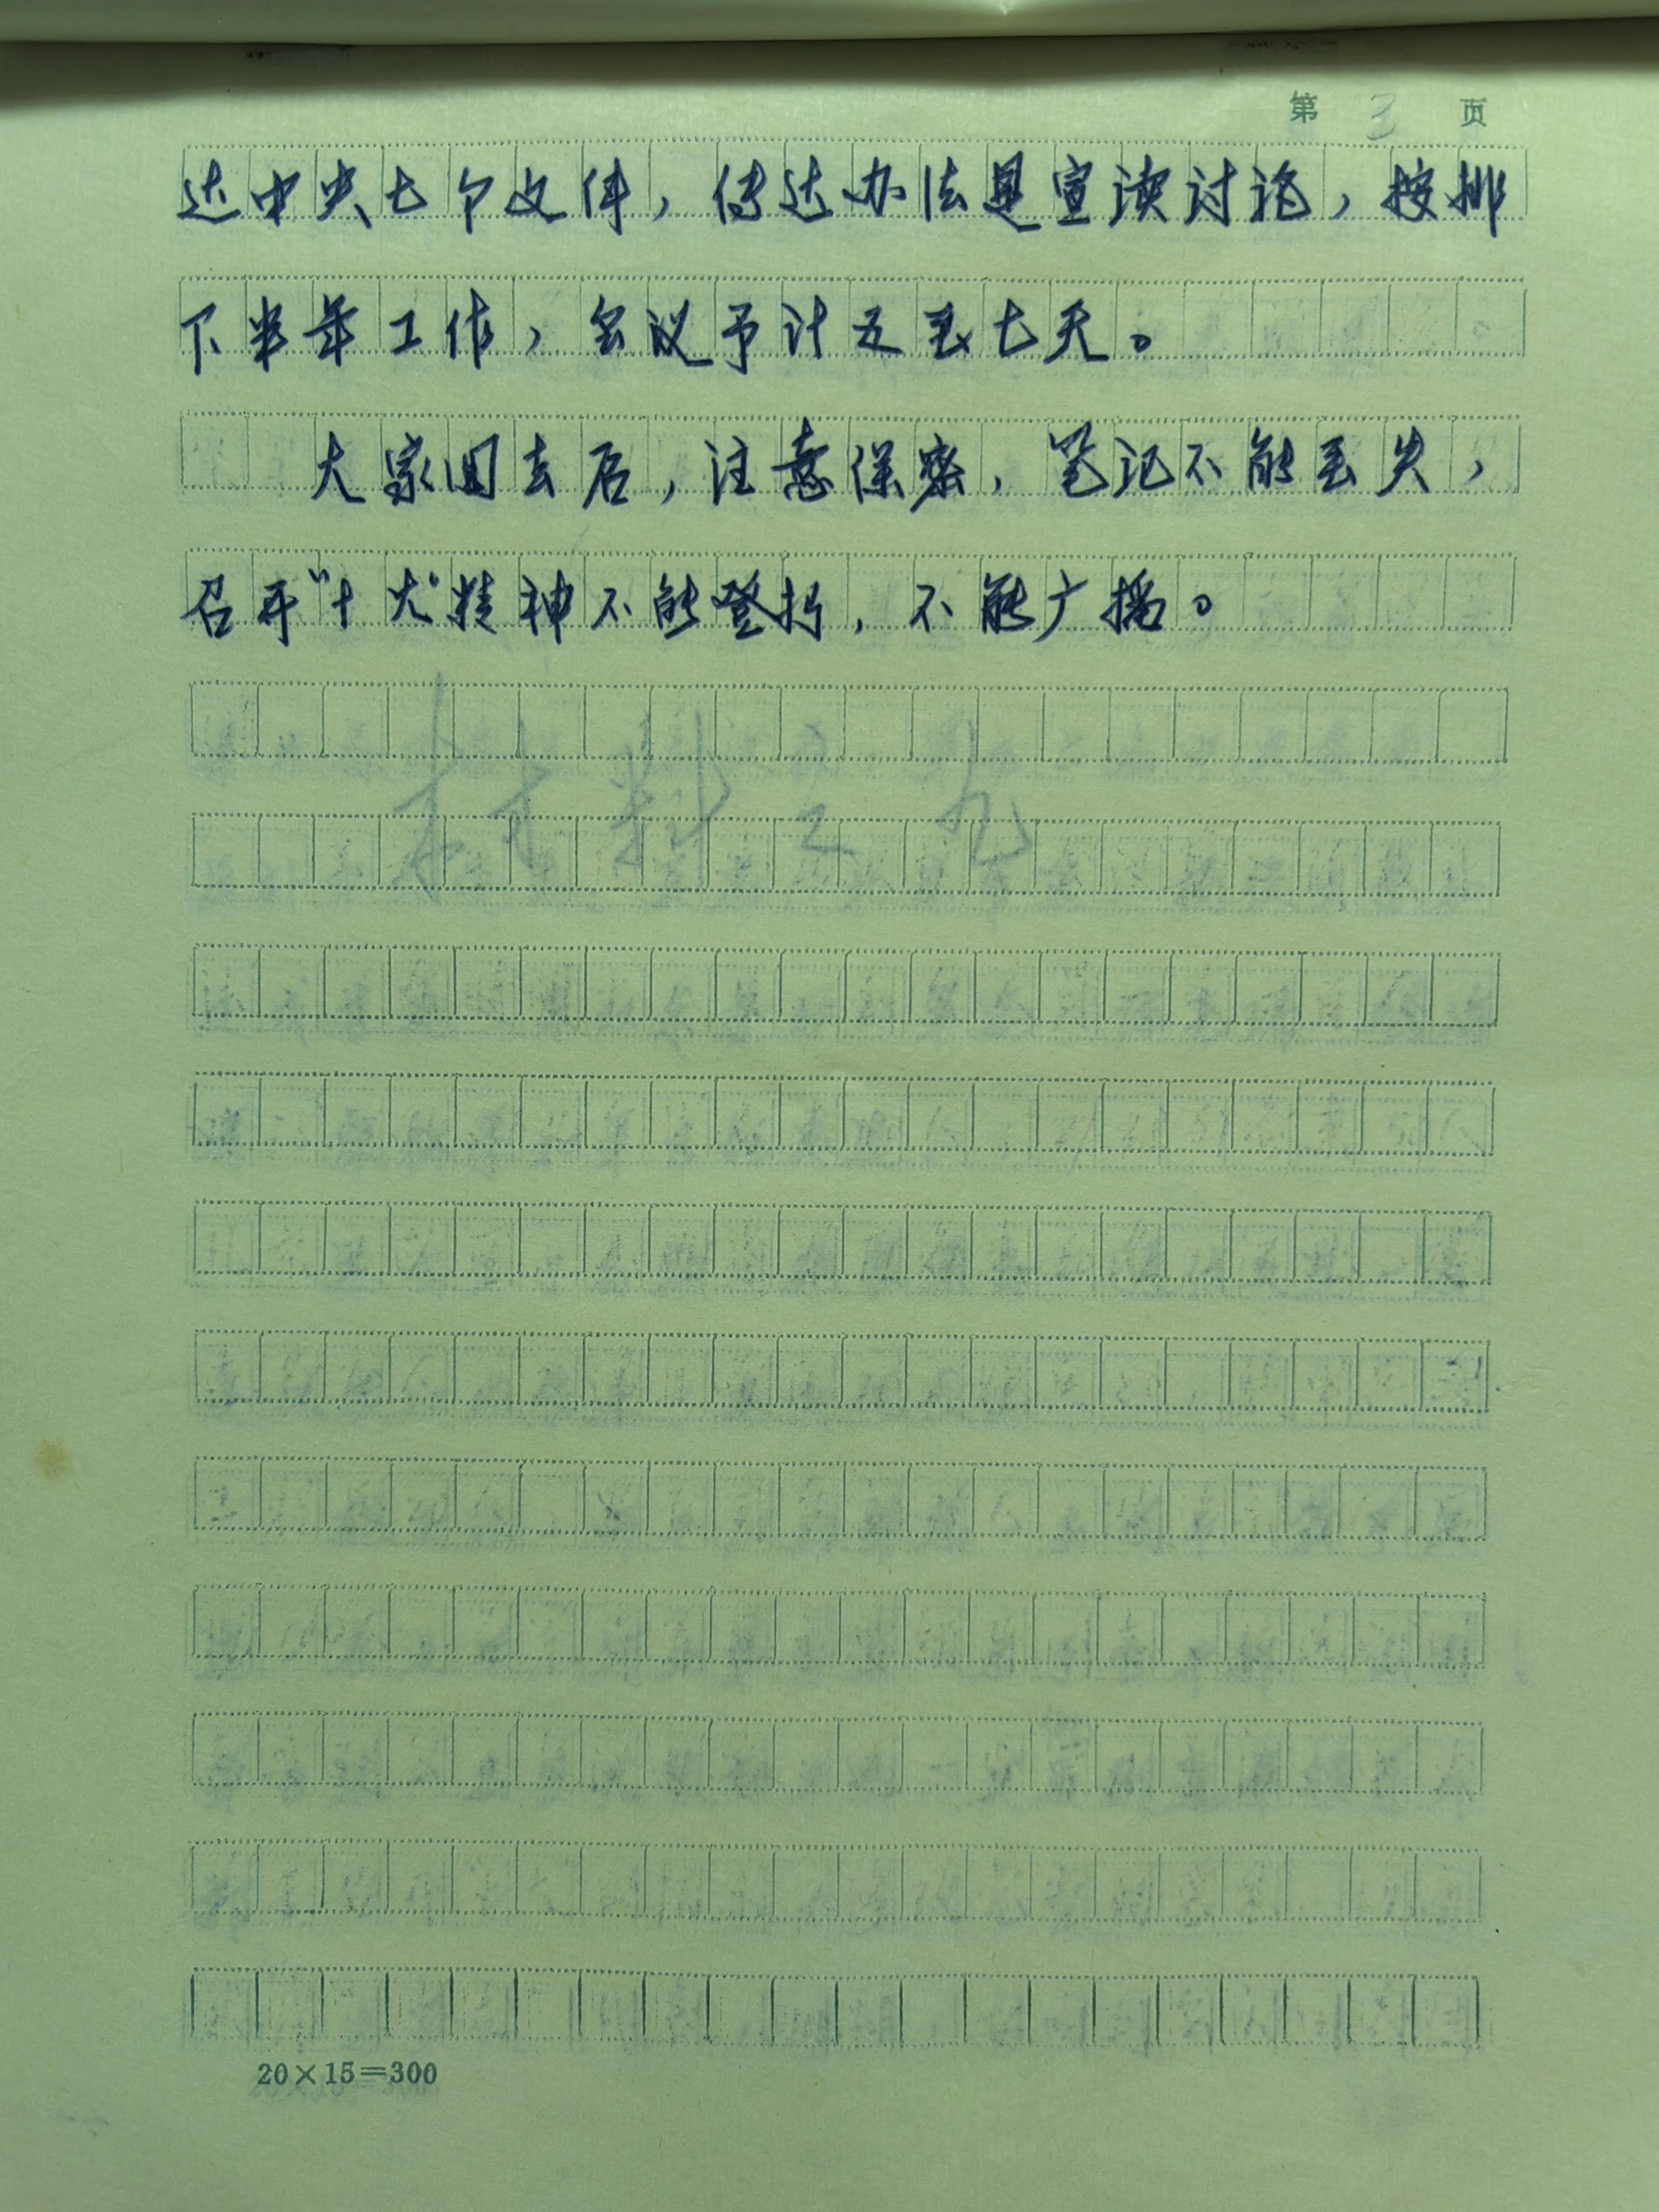 第 3 页
达中央七个文件，传达办法是宣读讨论，按排
下半年工作，会议予计五至七天。
大家回去后，注意保密，笔记不能丢失，
召开“十大”精神不能登报，不能广播。
材料之九
20×15=300